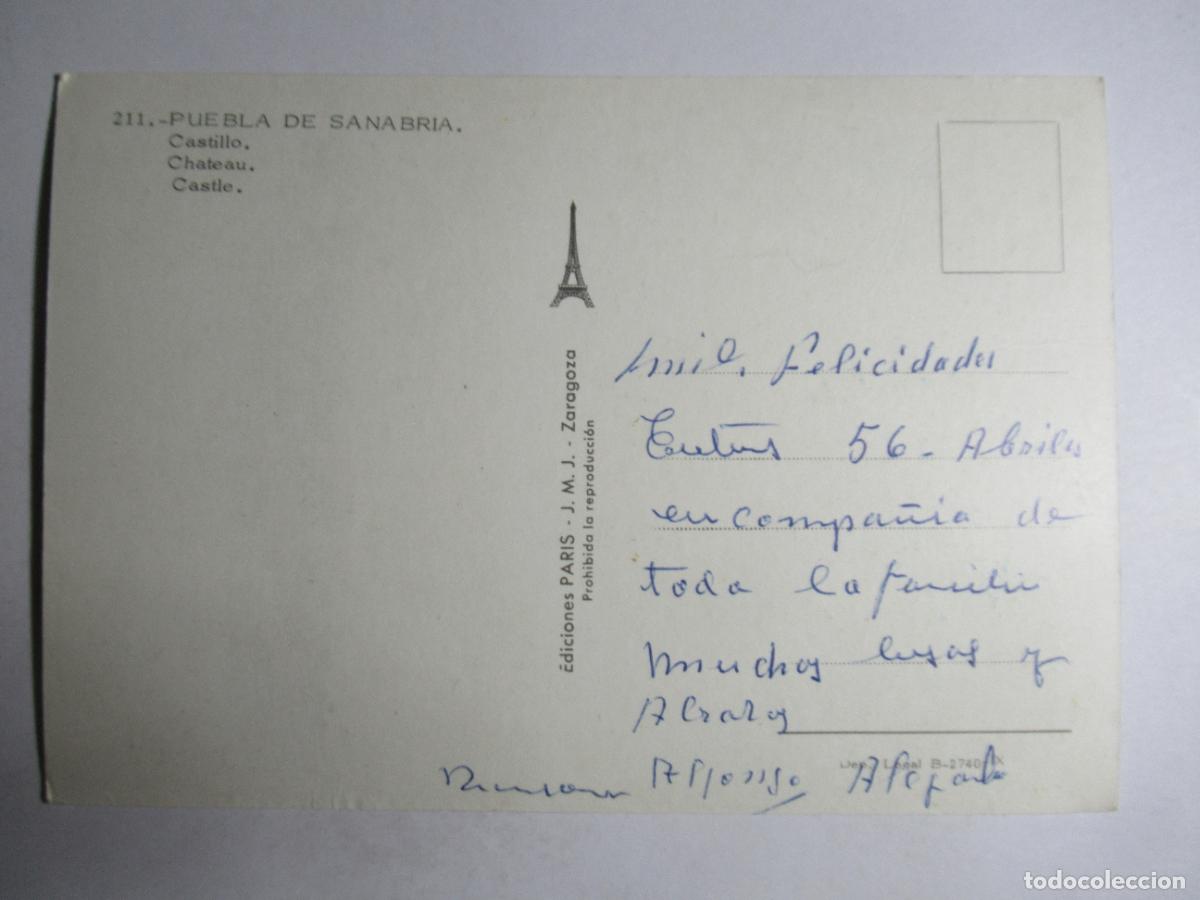 211.-PUEBLA DE SANABRIA.
Castillo.
Chateau.
Castle.
Ediciones PARIS - J. M. J. - Zaragoza
Prohibida la reproducción
mil. Felicidades
56 - Abriles
en compañia de
toda la familia
muchos besos y
Abrazos
Alfonso
Dep. Legal B-2740
todocoleccion